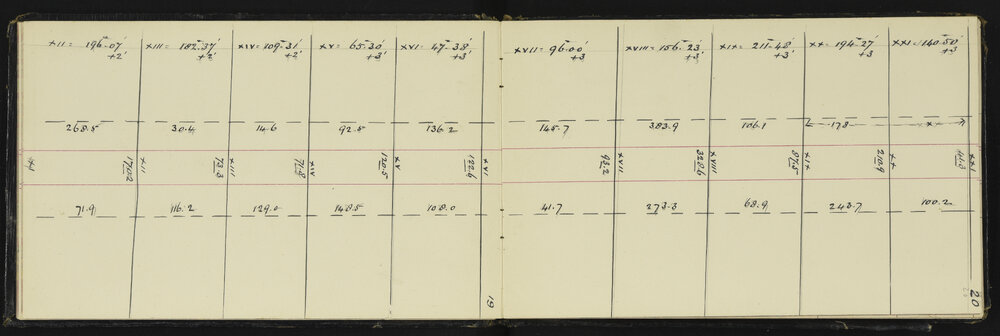 XII = 196-07' XIII = 182-37' XIV = 109-31' XV = 65-30' XVI = 47-38' XVII = 96-00' XVIII = 156-23' XIX = 211-48' XX = 194-27' XXI = 140-50'
+2' +2' +2' +3' +3' +3 +3' +3' +3' +3'
268.5 30.4 14.6 92.5 136.2 145.7 383.9 106.1 178 x
XI 170.2 XII 73.3 XIII 71.8 XIV 120.5 XV 122.4 XVI 93.2 XVII 328.6 XVIII 87.5 XIX 210.9 XX XXI
71.9 116.2 129.0 148.5 108.0 41.7 273.3 68.9 243.7 100.2
19 20